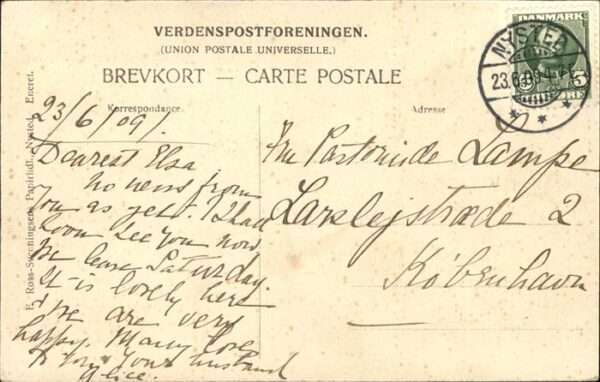 VERDENSPOSTFORENINGEN.
(UNION POSTALE UNIVERSELLE.)
BREVKORT — CARTE POSTALE
Korrespondance.
Adresse
DANMARK
5
ØRE
NYSTED
23.6.09.4-7E
E. Ross-Sørensingsen, Papirhdl., Nysted. Eneret.
23/6/09/.
Dearest Elsa
no news from
you as yet. I shall
soon see you now
We leave Saturday.
It is lovely here
& we are very
happy. Many love
to you & your husband
Alice.
Fru Pastorinde Lampe
Larslejstræde 2
København